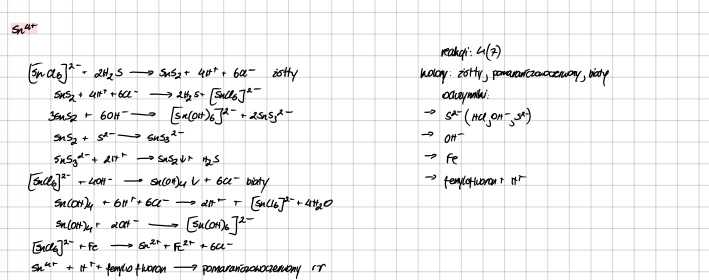 Sn⁴⁺
[SnCl₆]²⁻ + 2H₂S → SnS₂ + 4H⁺ + 6Cl⁻ żółty
SnS₂ + 4H⁺ + 6Cl⁻ → 2H₂S + [SnCl₆]²⁻
3SnS₂ + 6OH⁻ → [Sn(OH)₆]²⁻ + 2SnS₃²⁻
SnS₂ + S²⁻ → SnS₃²⁻
SnS₃²⁻ + 2H⁺ → SnS₂↓ + H₂S
[SnCl₆]²⁻ + 4OH⁻ → Sn(OH)₄ ↓ + 6Cl⁻ biały
Sn(OH)₄ + 6H⁺ + 6Cl⁻ → 2H⁺ + [SnCl₆]²⁻ + 4H₂O
Sn(OH)₄ + 2OH⁻ → [Sn(OH)₆]²⁻
[SnCl₆]²⁻ + Fe → Sn²⁺ + Fe²⁺ + 6Cl⁻
Sn⁴⁺ + H⁺ + fenylofluoron → pomarańczowoczerwony rr
reakcji: 4(7)
kolory: żółty, pomarańczowoczerwony, biały
odczynniki:
→ S²⁻ (HCl, OH⁻, S²⁻)
→ OH⁻
→ Fe
→ fenylofluoron + H⁺